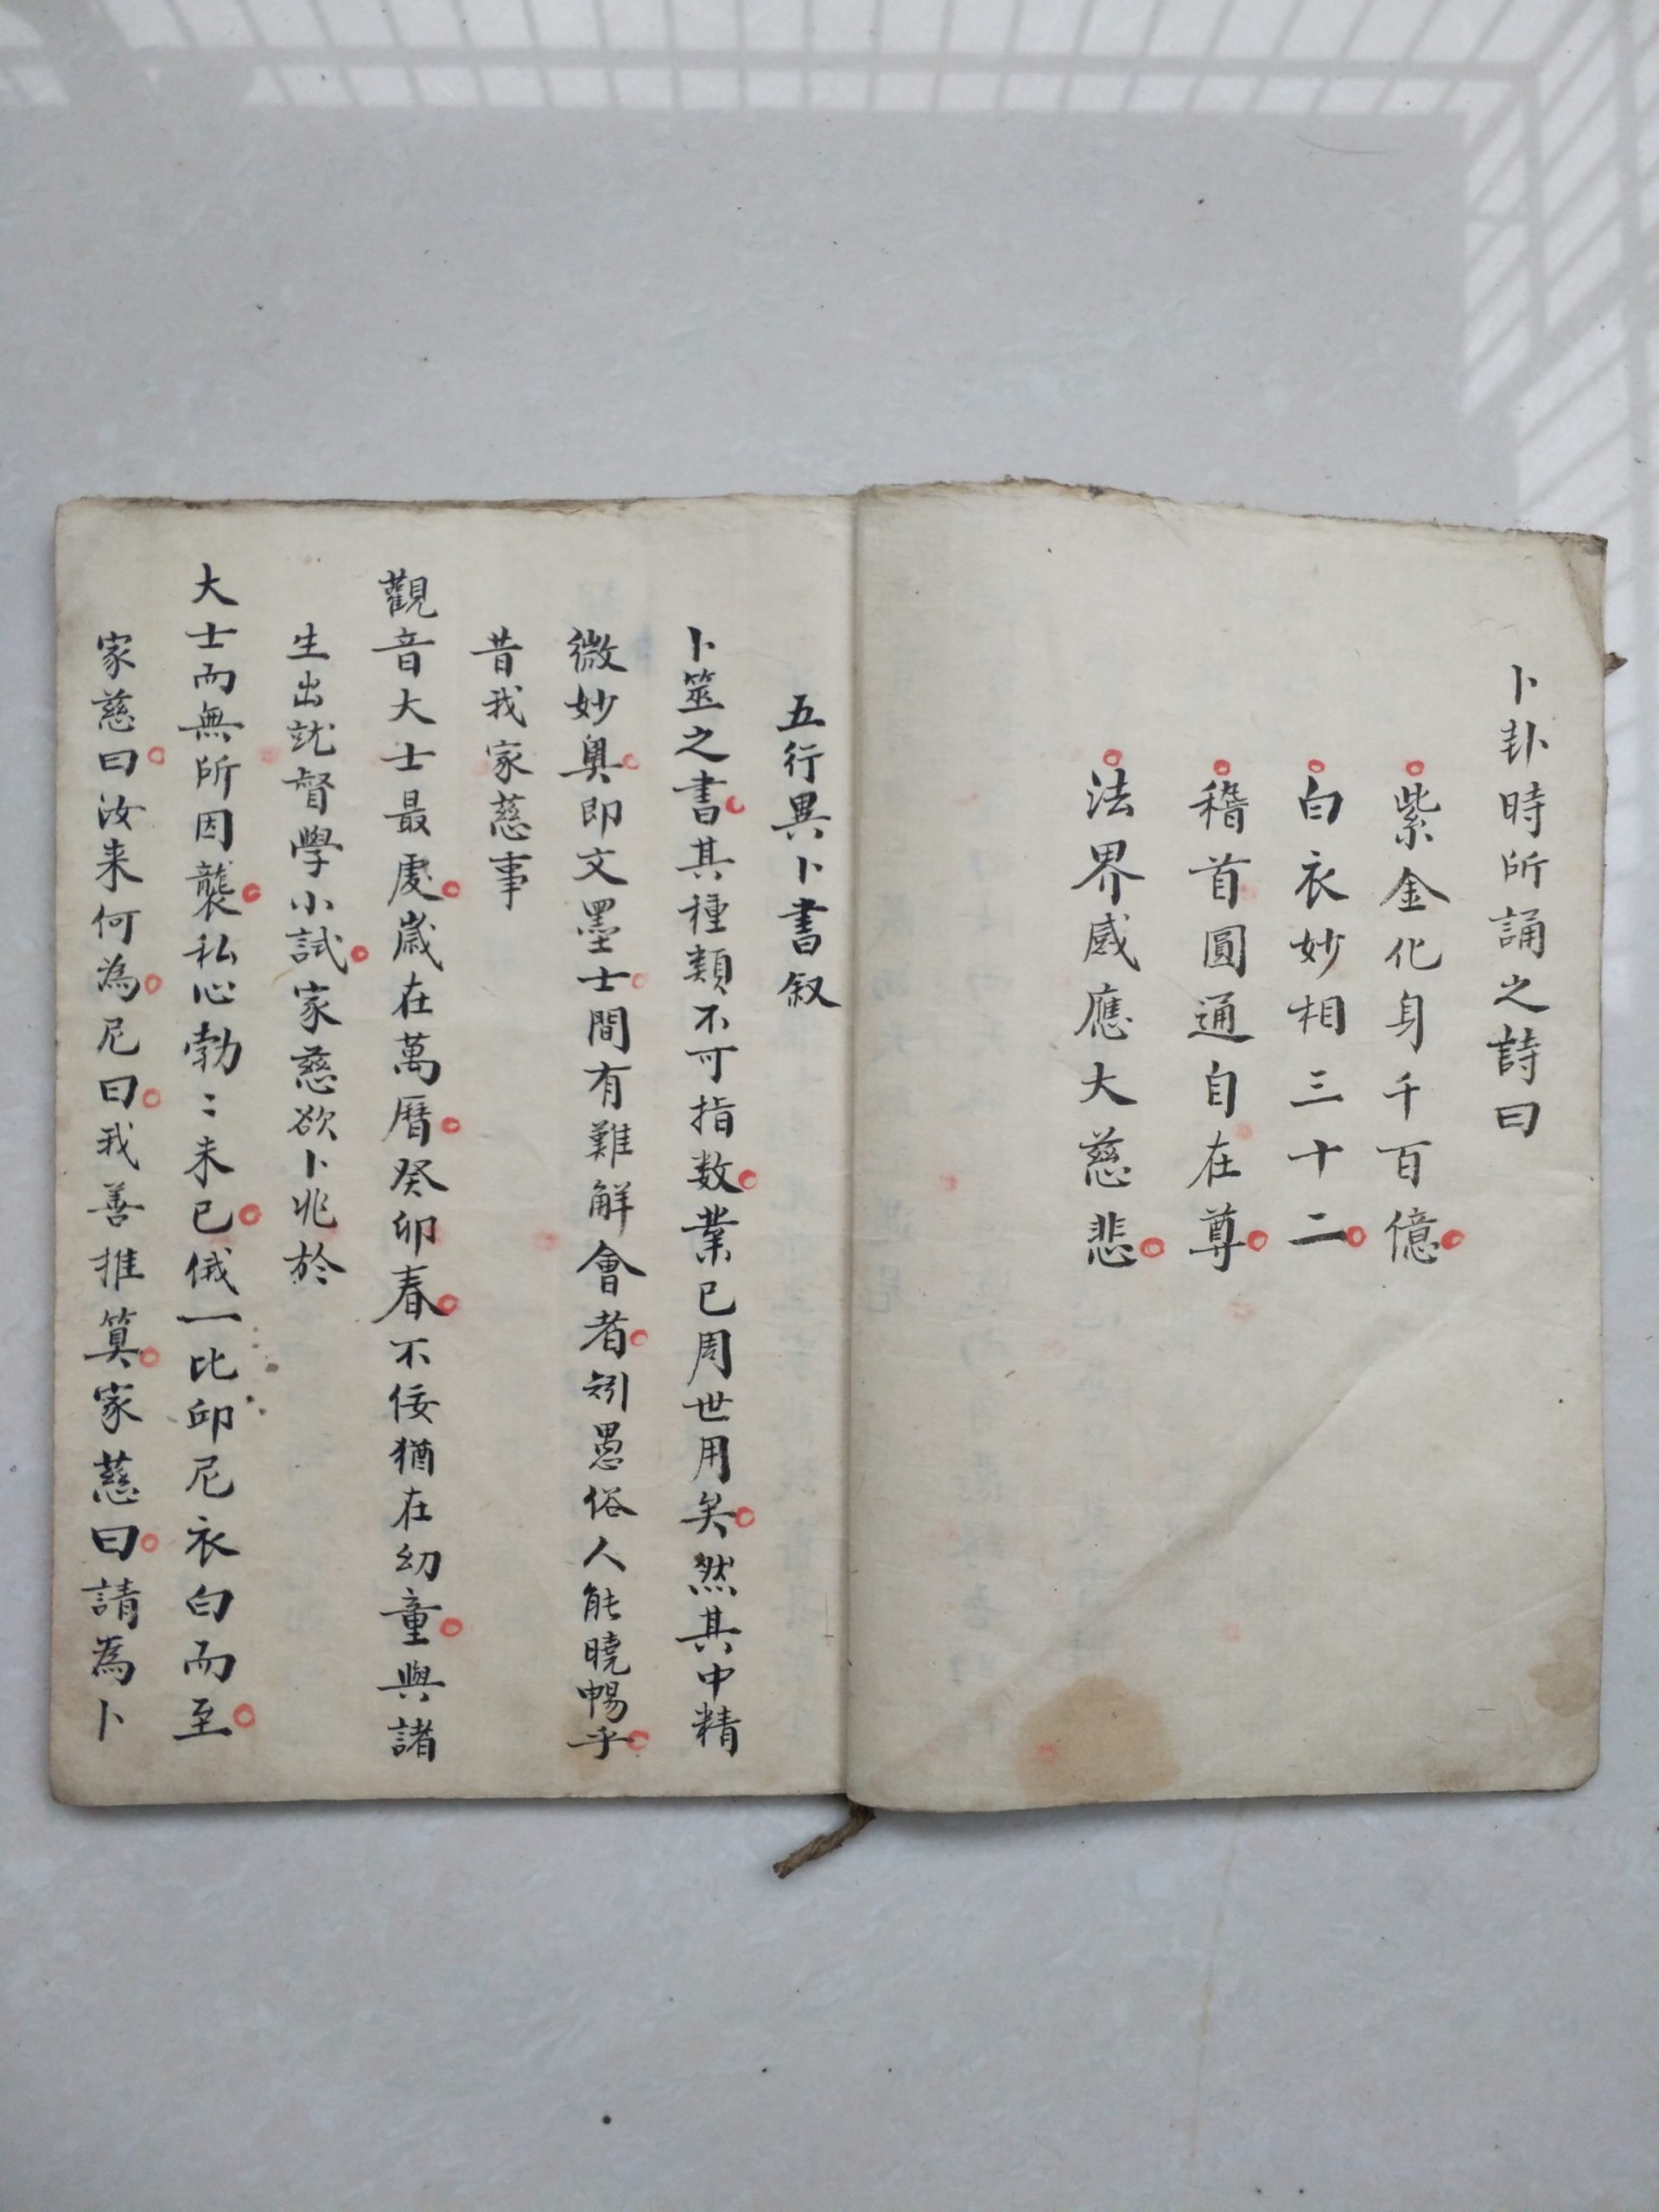 卜卦時所誦之詩曰
紫金化身千百億
白衣妙相三十二
稽首圓通自在尊
法界感應大慈悲
五行異卜書叙
卜筮之書其種類不可指数業已周世用矣然其中精
微妙奥即文墨士間有難解會者矧愚俗人能曉暢乎
昔我家慈事
觀音大士最虔歲在萬曆癸卯春不佞猶在幼童與諸
生出就督學小試家慈欲卜兆於
大士而無所因襲私心勃〻未已俄一比邱尼衣白而至
家慈曰汝来何為尼曰我善推算家慈曰請為卜